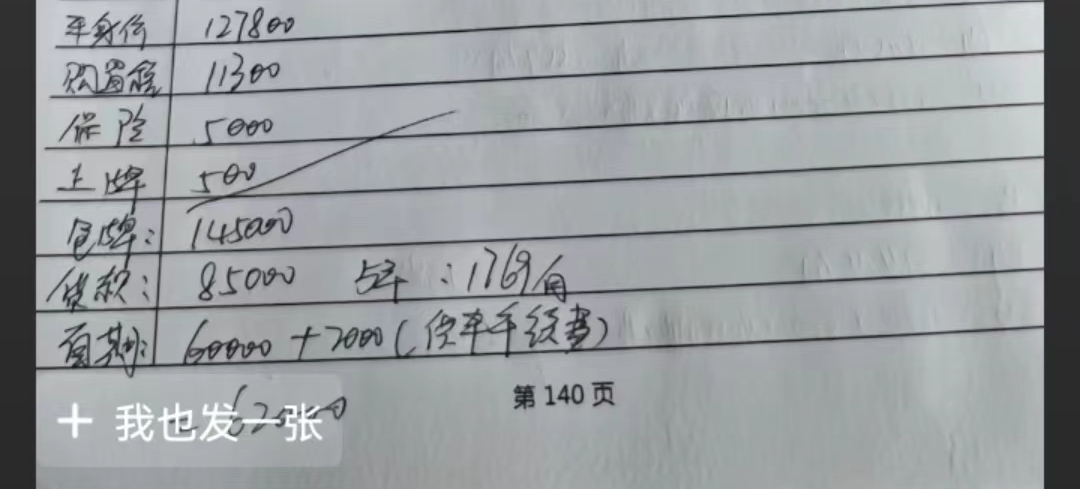 车身价 127800
购置税 11300
保险 5000
上牌 500
包牌: 145000
贷款: 85000 5年: 1769/月
首期: 60000+2000(贷车手续费)
62000
第 140 页
+ 我也发一张